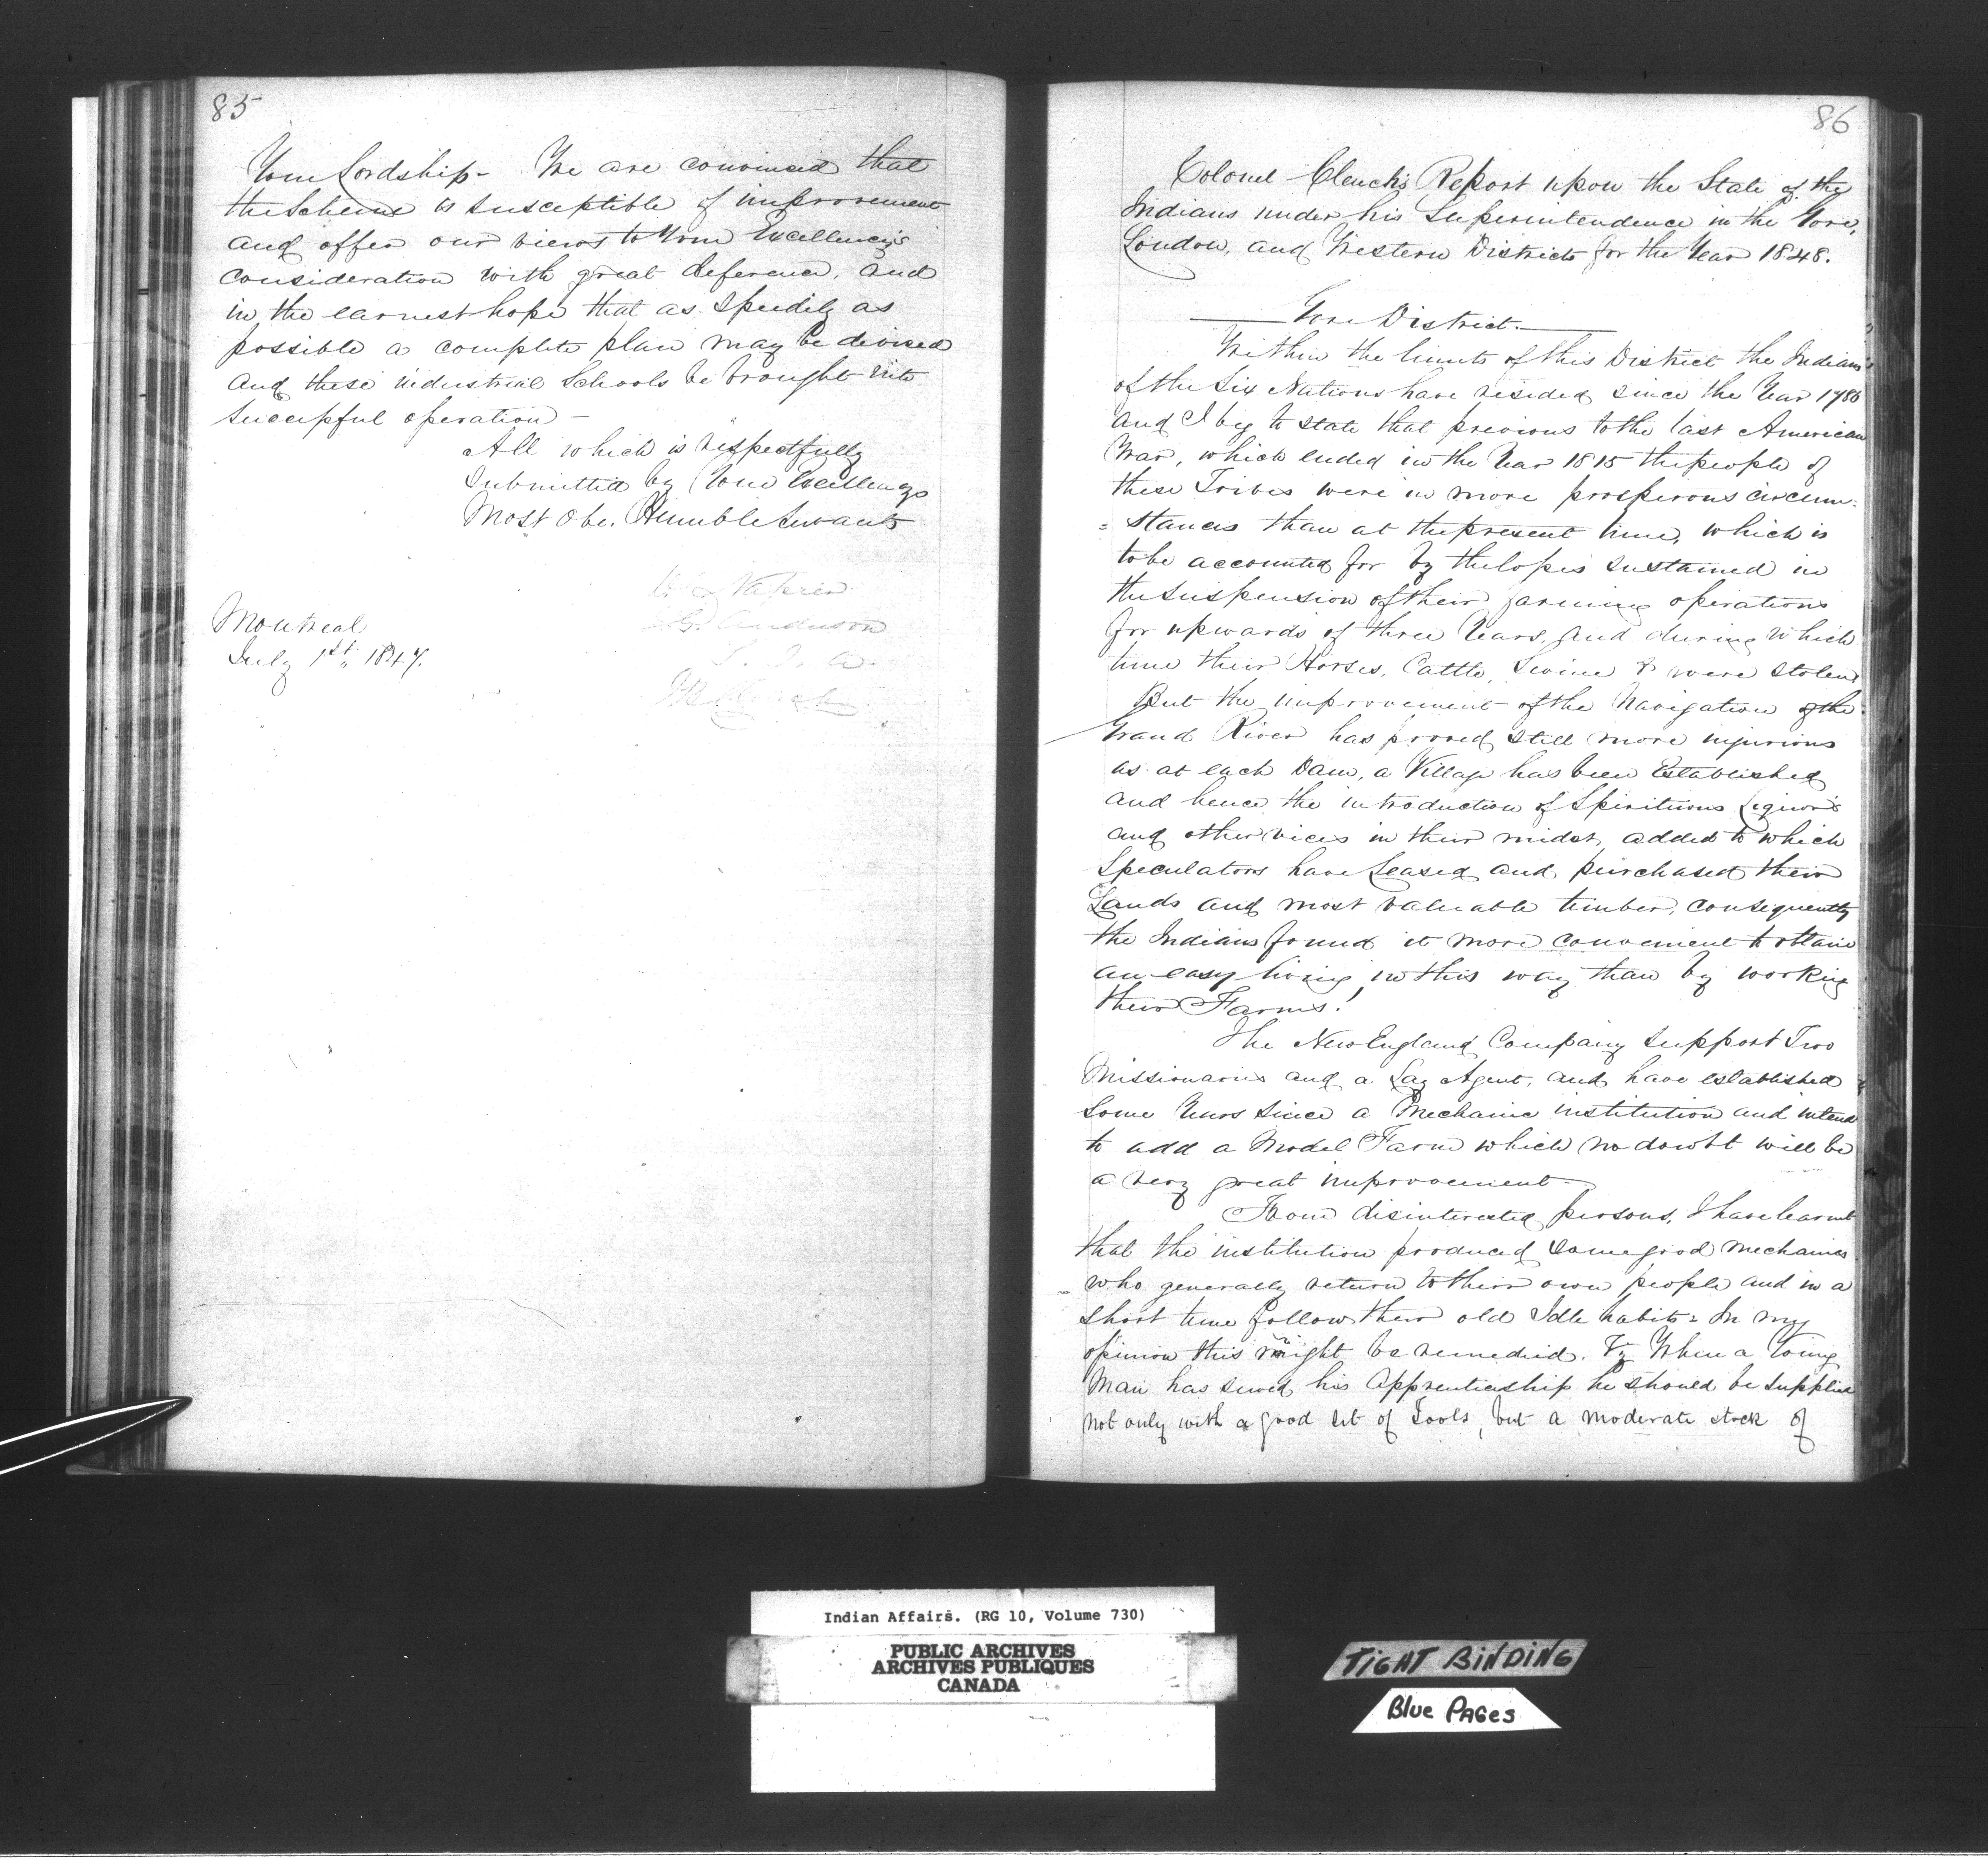 85
Your Lordship - We are convinced that
the Scheme is susceptible of improvement
and offer our views to Your Excellency's
consideration with great deference, and
in the earnest hope that as speedily as
possible a complete plan may be devised
and these industrial Schools be brought into
successful operation -
All which is respectfully
Submitted by Your Excellencys
Most Obe. Humble Servants
Napier
G. Anderson
S. I. A.
Montreal
July 1st, 1847.
86
Colonel Clench's Report upon the State of the
Indians under his Superintendence in the Gore,
London, and Western Districts for the Year 1848.
Gore District.
Within the limits of this District the Indians
of the Six Nations have resided since the Year 1786
and I beg to state that previous to the last American
War, which ended in the Year 1815 the people of
these Tribes were in more prosperous circum:
= stances than at the present time, which is
to be accounted for by the losses sustained in
the suspension of their farming operations
for upwards of three Years, and during which
time their Horses, Cattle, Swine & were stolen
But the improvement of the Navigation of the
Grand River has proved still more injurious
as at each Dam, a Village has been Established
and hence the introduction of Spirituous Liquors
and other vices in their midst, added to which
Speculators have Leased and purchased their
Lands and most valuable timber, consequently
the Indians found it more convenient to obtain
an easy living in this way than by working
their Farms!
The New England Company support Two
Missionaries and a Lay Agent, and have established
some Years since a Mechanic institution and intend
to add a Model Farm which no doubt will be
a very great improvement -
From disinterested persons, I have learnt
that the institution produced some good mechanics
who generally return to their own people and in a
short time follow their old Idle habits = In my
opinion this might be remedied. Vz When a Young
Man has served his Apprenticeship he should be supplied
not only with a good set of Tools, but a moderate stock of
Indian Affairs. (RG 10, Volume 730)
PUBLIC ARCHIVES
ARCHIVES PUBLIQUES
CANADA
TIGHT BINDING
Blue PAGES